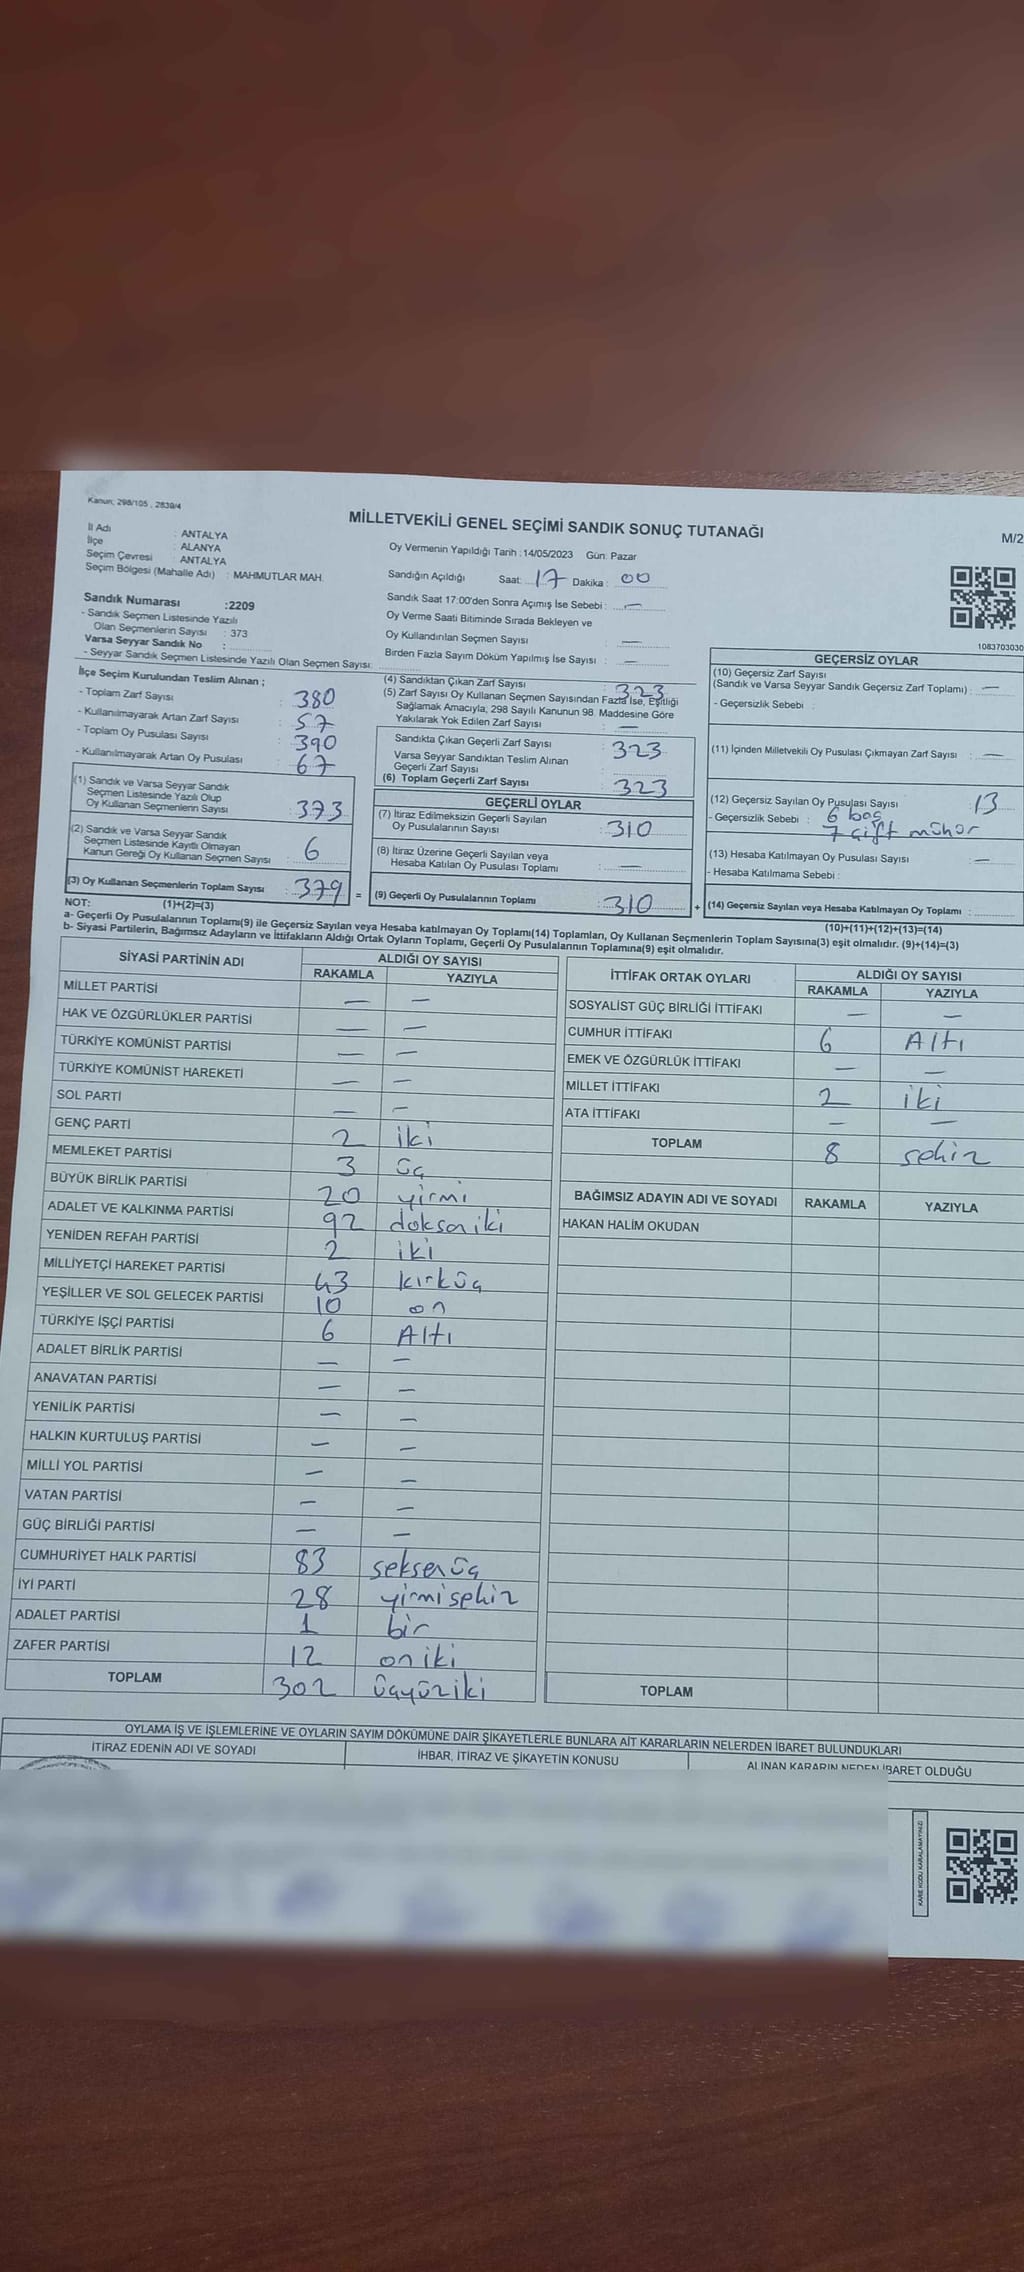 Kanun; 298/105 , 2839/4
MİLLETVEKİLİ GENEL SEÇİMİ SANDIK SONUÇ TUTANAĞI
M/2
İl Adı : ANTALYA
İlçe : ALANYA
Seçim Çevresi : ANTALYA
Seçim Bölgesi (Mahalle Adı) : MAHMUTLAR MAH.
Sandık Numarası :2209
- Sandık Seçmen Listesinde Yazılı
Olan Seçmenlerin Sayısı : 373
Varsa Seyyar Sandık No :
- Seyyar Sandık Seçmen Listesinde Yazılı Olan Seçmen Sayısı:
Oy Vermenin Yapıldığı Tarih :14/05/2023 Gün: Pazar
Sandığın Açıldığı Saat: 17 Dakika : 00
Sandık Saat 17:00'den Sonra Açımış İse Sebebi : —
Oy Verme Saati Bitiminde Sırada Bekleyen ve
Oy Kullandırılan Seçmen Sayısı —
Birden Fazla Sayım Döküm Yapılmış İse Sayısı : —
1083703030
İlçe Seçim Kurulundan Teslim Alınan ;
- Toplam Zarf Sayısı : 380
- Kullanılmayarak Artan Zarf Sayısı : 57
- Toplam Oy Pusulası Sayısı : 390
- Kullanılmayarak Artan Oy Pusulası : 67
(1) Sandık ve Varsa Seyyar Sandık
Seçmen Listesinde Yazılı Olup
Oy Kullanan Seçmenlerin Sayısı : 373
(2) Sandık ve Varsa Seyyar Sandık
Seçmen Listesinde Kayıtlı Olmayan
Kanun Gereği Oy Kullanan Seçmen Sayısı : 6
(3) Oy Kullanan Seçmenlerin Toplam Sayısı : 379
(4) Sandıktan Çıkan Zarf Sayısı : 323
(5) Zarf Sayısı Oy Kullanan Seçmen Sayısından Fazla İse, Eşitliği
Sağlamak Amacıyla, 298 Sayılı Kanunun 98. Maddesine Göre
Yakılarak Yok Edilen Zarf Sayısı : —
Sandıkta Çıkan Geçerli Zarf Sayısı : 323
Varsa Seyyar Sandıktan Teslim Alınan
Geçerli Zarf Sayısı :
(6) Toplam Geçerli Zarf Sayısı : 323
GEÇERLİ OYLAR
(7) İtiraz Edilmeksizin Geçerli Sayılan
Oy Pusulalarının Sayısı : 310
(8) İtiraz Üzerine Geçerli Sayılan veya
Hesaba Katılan Oy Pusulası Toplamı : —
= (9) Geçerli Oy Pusulalarının Toplamı : 310
GEÇERSİZ OYLAR
(10) Geçersiz Zarf Sayısı
(Sandık ve Varsa Seyyar Sandık Geçersiz Zarf Toplamı) : —
- Geçersizlik Sebebi :
(11) İçinden Milletvekili Oy Pusulası Çıkmayan Zarf Sayısı : —
(12) Geçersiz Sayılan Oy Pusulası Sayısı : 13
- Geçersizlik Sebebi : 6 boş
7 çift mühür
(13) Hesaba Katılmayan Oy Pusulası Sayısı : —
- Hesaba Katılmama Sebebi :
+ (14) Geçersiz Sayılan veya Hesaba Katılmayan Oy Toplamı :
NOT: (1)+(2)=(3)
(10)+(11)+(12)+(13)=(14)
a- Geçerli Oy Pusulalarının Toplamı(9) ile Geçersiz Sayılan veya Hesaba katılmayan Oy Toplamı(14) Toplamları, Oy Kullanan Seçmenlerin Toplam Sayısına(3) eşit olmalıdır. (9)+(14)=(3)
b- Siyasi Partilerin, Bağımsız Adayların ve İttifakların Aldığı Ortak Oyların Toplamı, Geçerli Oy Pusulalarının Toplamına(9) eşit olmalıdır.
SİYASİ PARTİNİN ADI ALDIĞI OY SAYISI
RAKAMLA YAZIYLA
MİLLET PARTİSİ — —
HAK VE ÖZGÜRLÜKLER PARTİSİ — —
TÜRKİYE KOMÜNİST PARTİSİ — —
TÜRKİYE KOMÜNİST HAREKETİ — —
SOL PARTİ — —
GENÇ PARTİ 2 iki
MEMLEKET PARTİSİ 3 üç
BÜYÜK BİRLİK PARTİSİ 20 yirmi
ADALET VE KALKINMA PARTİSİ 92 doksan iki
YENİDEN REFAH PARTİSİ 2 iki
MİLLİYETÇİ HAREKET PARTİSİ 43 kırküç
YEŞİLLER VE SOL GELECEK PARTİSİ 10 on
TÜRKİYE İŞÇİ PARTİSİ 6 Altı
ADALET BİRLİK PARTİSİ — —
ANAVATAN PARTİSİ — —
YENİLİK PARTİSİ — —
HALKIN KURTULUŞ PARTİSİ — —
MİLLİ YOL PARTİSİ — —
VATAN PARTİSİ — —
GÜÇ BİRLİĞİ PARTİSİ — —
CUMHURİYET HALK PARTİSİ 83 seksen üç
İYİ PARTİ 28 yirmisekiz
ADALET PARTİSİ 1 bir
ZAFER PARTİSİ 12 on iki
TOPLAM 302 üçyüziki
İTTİFAK ORTAK OYLARI ALDIĞI OY SAYISI
RAKAMLA YAZIYLA
SOSYALİST GÜÇ BİRLİĞİ İTTİFAKI — —
CUMHUR İTTİFAKI 6 Altı
EMEK VE ÖZGÜRLÜK İTTİFAKI — —
MİLLET İTTİFAKI 2 iki
ATA İTTİFAKI — —
TOPLAM 8 sekiz
BAĞIMSIZ ADAYIN ADI VE SOYADI RAKAMLA YAZIYLA
HAKAN HALİM OKUDAN
TOPLAM
OYLAMA İŞ VE İŞLEMLERİNE VE OYLARIN SAYIM DÖKÜMÜNE DAİR ŞİKAYETLERLE BUNLARA AİT KARARLARIN NELERDEN İBARET BULUNDUKLARI
İTİRAZ EDENİN ADI VE SOYADI
İHBAR, İTİRAZ VE ŞİKAYETİN KONUSU
ALINAN KARARIN NEDEN İBARET OLDUĞU
KARE KODU KARALAMAYINIZ!